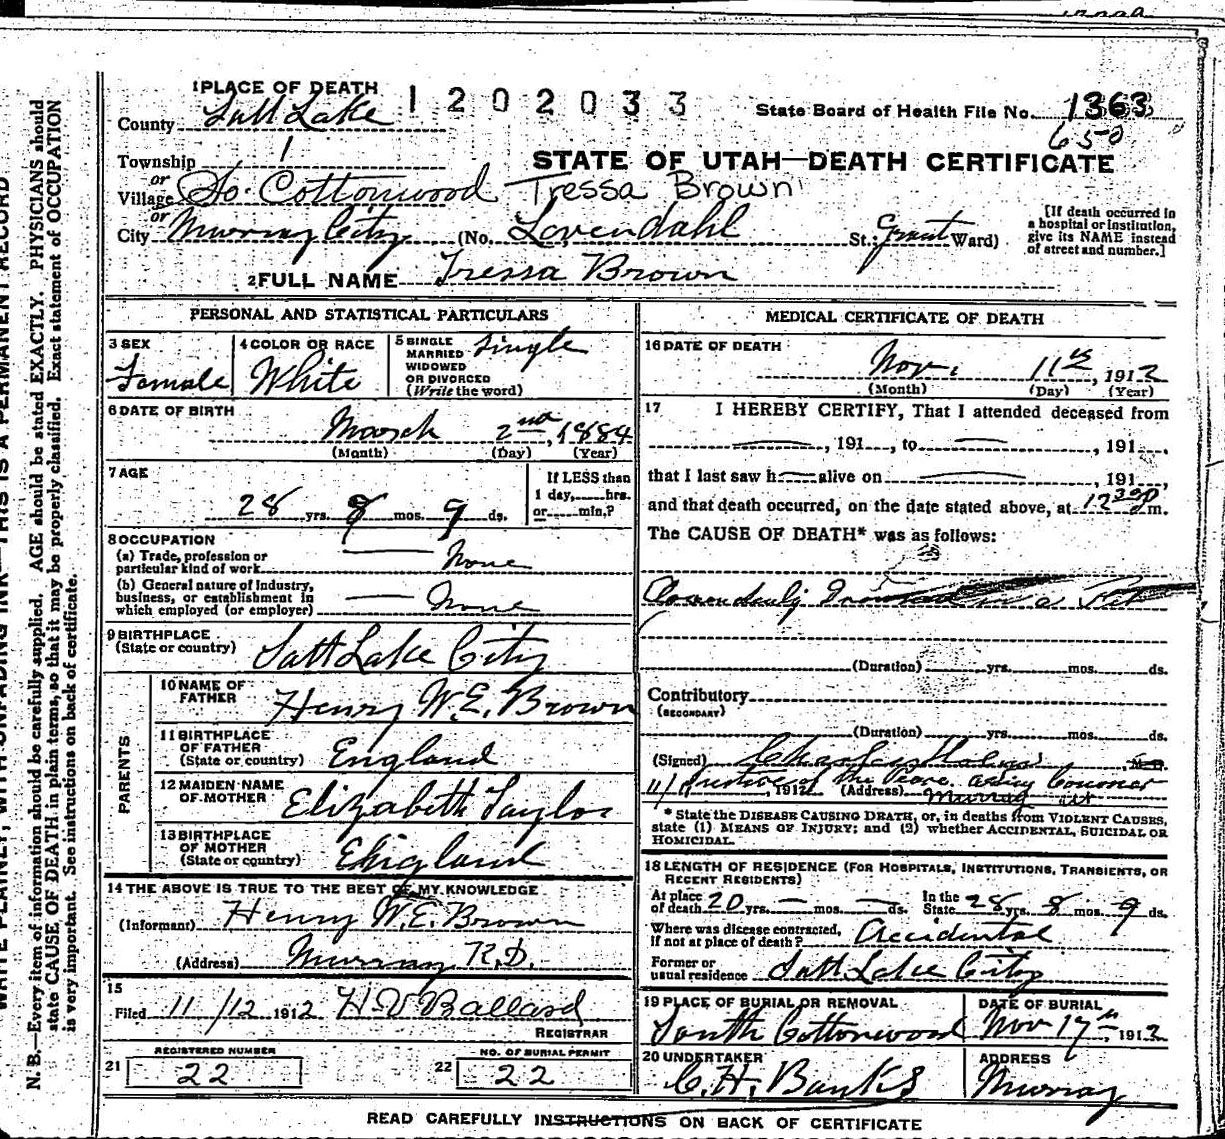 1 PLACE OF DEATH
1 2 0 2 0 3 3
State Board of Health File No. 1363
650
County Salt Lake
Township 1
STATE OF UTAH—DEATH CERTIFICATE
or
Village So. Cottonwood Tressa Brown
or
City Murray City (No. Lovendahl St.; Grant Ward)
[If death occurred in
a hospital or institution,
give its NAME instead
of street and number.]
2 FULL NAME Tressa Brown
PERSONAL AND STATISTICAL PARTICULARS
3 SEX
Female
4 COLOR OR RACE
White
5 SINGLE
MARRIED
WIDOWED
OR DIVORCED
(Write the word)
Single
6 DATE OF BIRTH
March 2nd, 1884
(Month) (Day) (Year)
7 AGE
28 yrs. 8 mos. 9 ds.
If LESS than
1 day, hrs.
or min.?
8 OCCUPATION
(a) Trade, profession or
particular kind of work None
(b) General nature of industry,
business, or establishment in
which employed (or employer) None
9 BIRTHPLACE
(State or country) Salt Lake City
PARENTS
10 NAME OF
FATHER Henry W.E. Brown
11 BIRTHPLACE
OF FATHER
(State or country) England
12 MAIDEN NAME
OF MOTHER Elizabeth Taylor
13 BIRTHPLACE
OF MOTHER
(State or country) England
14 THE ABOVE IS TRUE TO THE BEST OF MY KNOWLEDGE
(Informant) Henry W.E. Brown
(Address) Murray R.D.
15
Filed 11/12 1912 H D Ballard
REGISTRAR
21 REGISTERED NUMBER
22
22 NO. OF BURIAL PERMIT
22
MEDICAL CERTIFICATE OF DEATH
16 DATE OF DEATH
Nov. 11th, 1912
(Month) (Day) (Year)
17 I HEREBY CERTIFY, That I attended deceased from
, 191 , to , 191 ,
that I last saw h alive on , 191 ,
and that death occurred, on the date stated above, at 12 30 P m.
The CAUSE OF DEATH* was as follows:
in a Fit
(Duration) yrs. mos. ds.
Contributory
(SECONDARY)
(Duration) yrs. mos. ds.
(Signed) M.D.
11/ Justice of the Peace, acting Coroner
, 1912 (Address) Murray Ut
* State the DISEASE CAUSING DEATH, or, in deaths from VIOLENT CAUSES,
state (1) MEANS OF INJURY; and (2) whether ACCIDENTAL, SUICIDAL OR
HOMICIDAL.
18 LENGTH OF RESIDENCE (FOR HOSPITALS, INSTITUTIONS, TRANSIENTS, OR
RECENT RESIDENTS)
At place
of death 20 yrs. — mos. — ds.
In the
State 28 yrs. 8 mos. 9 ds.
Where was disease contracted,
if not at place of death? Accidental
Former or
usual residence Salt Lake City
19 PLACE OF BURIAL OR REMOVAL
South Cottonwood
DATE OF BURIAL
Nov 17th, 1912
20 UNDERTAKER
C. H. Banks
ADDRESS
Murray
READ CAREFULLY INSTRUCTIONS ON BACK OF CERTIFICATE
WRITE PLAINLY, WITH UNFADING INK—THIS IS A PERMANENT RECORD
N. B.—Every item of information should be carefully supplied. AGE should be stated EXACTLY. PHYSICIANS should
state CAUSE OF DEATH in plain terms, so that it may be properly classified. Exact statement of OCCUPATION
is very important. See instructions on back of certificate.